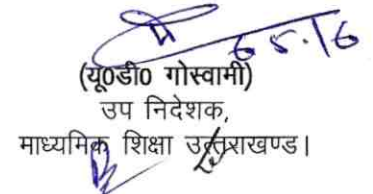 6.5.16
(यू0डी0 गोस्वामी)
उप निदेशक,
माध्यमिक शिक्षा उत्तराखण्ड।